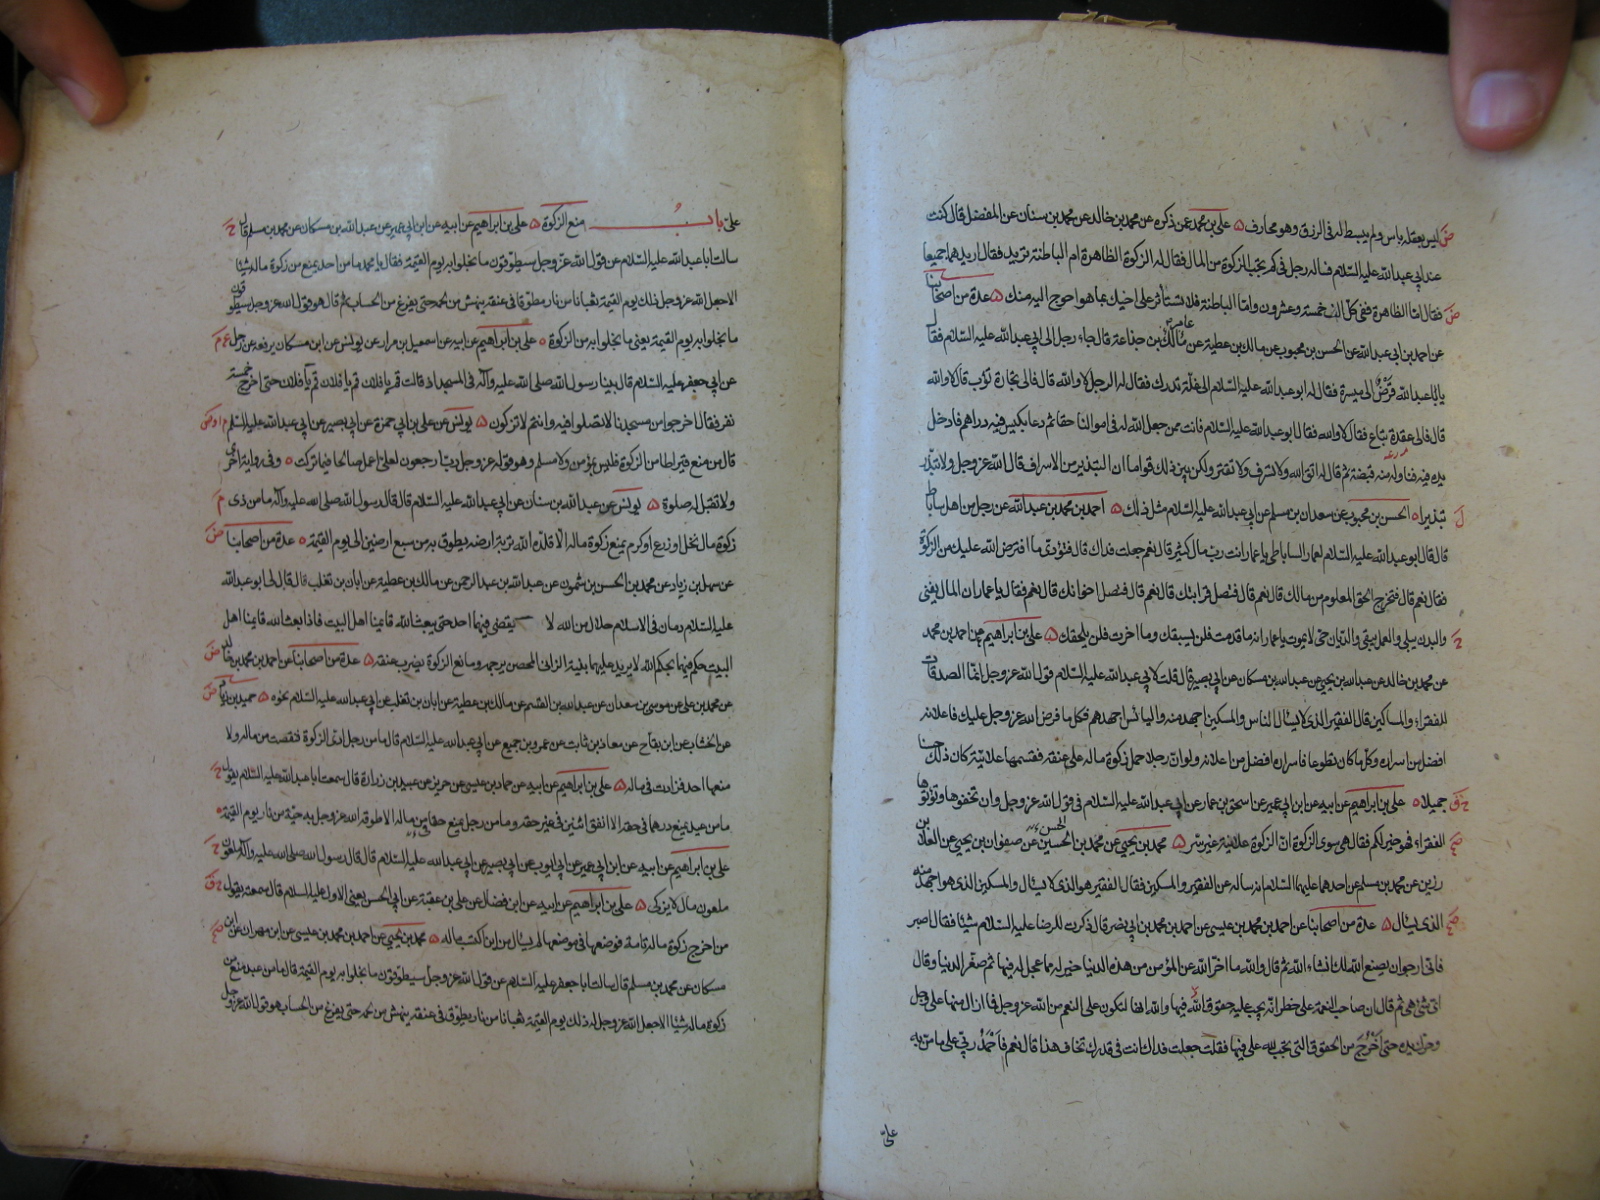 ليس يعقله باس ولم يبسط له فى الرزق وهو محارف ۵ على بن محمد عمن ذكره عن محمد بن خالد عن محمد بن سنان عن المفضل قال كنت
عند ابى عبد الله عليه السلام فساله رجل فى كم يجب الزكوة من المال فقال له الزكوة الظاهرة ام الباطنة تريد فقال اريدهما جميعا
فقال اما الظاهرة ففى كل الف خمسة وعشرون واما الباطنة فلا تستأثر على اخيك بما هو احوج اليه منك ۵ عدة من اصحابنا
عن احمد بن ابى عبد الله عن الحسن بن محبوب عن مالك بن عطية عن عامر بن جذاعة قال جاء رجل الى ابى عبد الله عليه السلام فقال
يا ابا عبد الله قرض الى ميسرة فقال له ابو عبد الله عليه السلام الى غلة تدرك فقال له الرجل لا والله قال فالى تجارة تؤب قال لا والله
قال فالى عقدة تباع فقال لا والله فقال ابو عبد الله عليه السلام فانت ممن جعل الله له فى اموالنا حقا ثم دعا بكيس فيه دراهم فادخل
يده فيه فناوله منه قبضة ثم قال له اتق الله ولا تسرف ولا تقتر ولكن بين ذلك قواما ان التبذير من الاسراف قال الله عز وجل ولا تبذر
تبذيرا ۵ الحسن بن محبوب عن سعدان بن مسلم عن ابى عبد الله عليه السلام مثل ذلك ۵ احمد بن محمد بن عبد الله عن رجل من اهل ساباط
قال قال ابو عبد الله عليه السلام لعمار الساباطى يا عمار انت رب مال كثير قال نعم جعلت فداك قال فتؤدى ما افترض الله عليك من الزكوة
فقال نعم قال فتخرج الحق المعلوم من مالك قال نعم قال فتصل قرابتك قال نعم قال فتصل اخوانك قال نعم فقال يا عمار ان المال يفنى
والبدن يبلى والعمل يبقى والديان حى لا يموت يا عمار انه ما قدمت فلن يسبقك وما اخرت فلن يلحقك ۵ على بن ابراهيم عن احمد بن محمد
عن محمد بن خالد عن عبد الله بن يحيى عن عبد الله بن مسكان عن ابى بصير قال قلت لابى عبد الله عليه السلام قول الله عز وجل انما الصدقات
للفقراء والمساكين قال الفقير الذى لا يسال الناس والمسكين اجهد منه والبائس اجهدهم فكل ما فرض الله عز وجل عليك فاعلانه
افضل من اسراره وكل ما كان تطوعا فاسراره افضل من اعلانه ولو ان رجلا حمل زكوة ماله على عنقه فقسمها علانية كان ذلك حسنا
جميلا ۵ على بن ابراهيم عن ابيه عن ابن ابى عمير عن اسحق بن عمار عن ابى عبد الله عليه السلام فى قول الله عز وجل وان تخفوها وتؤتوها
الفقراء فهو خير لكم فقال هى سوى الزكوة ان الزكوة علانية غير سر ۵ محمد بن يحيى عن محمد بن الحسين عن صفوان بن يحيى عن العلا بن
رزين عن محمد بن مسلم عن احدهما عليهما السلام انه ساله عن الفقير والمسكين فقال الفقير هو الذى لا يسال والمسكين الذى هو اجهد منه
الذى يسال ۵ عدة من اصحابنا عن احمد بن محمد بن عيسى عن احمد بن محمد بن ابى نصر قال ذكرت للرضا عليه السلام شيئا فقال اصبر
فانى ارجو ان يصنع الله لك انشاء الله ثم قال والله ما اخر الله عن المؤمن من هذه الدنيا خير له مما عجل له فيها ثم صغر الدنيا وقال
اى شئ هى ثم قال ان صاحب النعمة على خطر انه يجب عليه حقوق الله فيها والله انها لتكون على النعم من الله عز وجل فما ازال منها على وجل
وحرك يده حتى اخرج من الحقوق التى تجب لله على فيها فقلت جعلت فداك انت فى قدرك تخاف هذا قال نعم فاحمد ربى على ما من به
على
على باب منع الزكوة ۵ على بن ابراهيم عن ابيه عن ابن ابى عمير عن عبد الله بن مسكان عن محمد بن مسلم قال
سالت ابا عبد الله عليه السلام عن قول الله عز وجل سيطوقون ما بخلوا به يوم القيمة فقال يا محمد ما من احد يمنع من زكوة ماله شيئا
الا جعل الله عز وجل ذلك يوم القيمة ثعبانا من نار مطوقا فى عنقه ينهش من لحمه حتى يفرغ من الحساب ثم قال هو قول الله عز وجل سيطوقون
ما بخلوا به يوم القيمة يعنى ما بخلوا به من الزكوة ۵ على بن ابراهيم عن ابيه عن اسمعيل بن مرار عن يونس عن ابن مسكان يرفعه عن رجل
عن ابى جعفر عليه السلام قال بينا رسول الله صلى الله عليه وآله فى المسجد اذ قال قم يا فلان قم يا فلان قم يا فلان حتى اخرج خمسة
نفر فقال اخرجوا من مسجدنا لا تصلوا فيه وانتم لا تزكون ۵ يونس عن على بن ابى حمزة عن ابى بصير عن ابى عبد الله عليه السلم
قال من منع قيراطا من الزكوة فليس بمؤمن ولا مسلم وهو قوله عز وجل رب ارجعون لعلى اعمل صالحا فيما تركت ۵ وفى رواية اخرى
ولا تقبل له صلوة ۵ يونس عن عبد الله بن سنان عن ابى عبد الله عليه السلام قال قال رسول الله صلى الله عليه وآله ما من ذى
زكوة مال نخل او زرع او كرم يمنع زكوة ماله الا قلده الله تربة ارضه يطوق به من سبع ارضين الى يوم القيمة ۵ عدة من اصحابنا
عن سهل بن زياد عن محمد بن الحسن بن شمون عن عبد الله بن عبد الرحمن عن مالك بن عطية عن ابان بن تغلب قال قال لى ابو عبد الله
عليه السلام دمان فى الاسلام حلال من الله لا يقضى فيهما احد حتى يبعث الله قائمنا اهل البيت فاذا بعث الله قائمنا اهل
البيت حكم فيهما بحكم الله لا يريد عليهما بينة الزانى المحصن يرجمه ومانع الزكوة يضرب عنقه ۵ عدة من اصحابنا عن احمد بن محمد بن خالد
عن محمد بن على عن موسى بن سعدان عن عبد الله بن القسم عن مالك بن عطية عن ابان بن تغلب عن ابى عبد الله عليه السلام نحوه ۵ حميد بن زياد
عن الخشاب عن ابن بقاح عن معاذ بن ثابت عن عمرو بن جميع عن ابى عبد الله عليه السلام قال ما من رجل ادى الزكوة فنقصت من ماله ولا
منعها احد فزادت فى ماله ۵ على بن ابراهيم عن ابيه عن حماد بن عيسى عن حريز عن عبيد بن زرارة قال سمعت ابا عبد الله عليه السلام يقول
ما من عبد يمنع درهما فى حقه الا انفق اثنين فى غير حقه وما من رجل يمنع حقا من ماله الا طوقه الله عز وجل به حية من نار يوم القيمة ۵
على بن ابراهيم عن ابيه عن ابن ابى عمير عن ابى ايوب عن ابى بصير عن ابى عبد الله عليه السلام قال قال رسول الله صلى الله عليه وآله ملعون
ملعون مال لا يزكى ۵ على بن ابراهيم عن ابيه عن ابن فضال عن على بن عقبة عن ابى الحسن يعنى الاول عليه السلام قال سمعته يقول
من اخرج زكوة ماله تامة فوضعها فى موضعها لم يسال من اين اكتسب ماله ۵ محمد بن يحيى عن احمد بن محمد بن عيسى عن ابن مهران عن ابن
مسكان عن محمد بن مسلم قال سالت ابا جعفر عليه السلام عن قول الله عز وجل سيطوقون ما بخلوا به يوم القيمة قال ما من عبد منع من
زكوة ماله شيئا الا جعل الله عز وجل له ذلك يوم القيمة ثعبانا من نار يطوق فى عنقه ينهش من لحمه حتى يفرغ من الحساب هو قول الله عز وجل